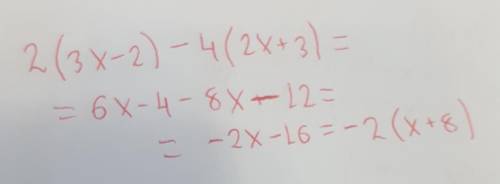 2(3x-2)-4(2x+3)=
=6x-4-8x-12=
=-2x-16=-2(x+8)